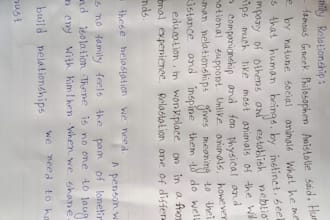 Relationship:
famous Greek Philosopher Aristotle said H
e by nature social animals What he me
s that human beings by instinct see
mpany of others and establish relatio
ips much like most animals of the wi
companionship and for Physical and
otional support unlike animals, howev
man relationships gives meaning to thei
istance and inspire them to do well
education, in workplace or in a fam
onal experience Relastation are of differen
nds.
these relastation we need A person w
s no family feels the pain of loneli
nd isolation There is no one to laug
cry with him/her When we share
build relationships we need to ha
must